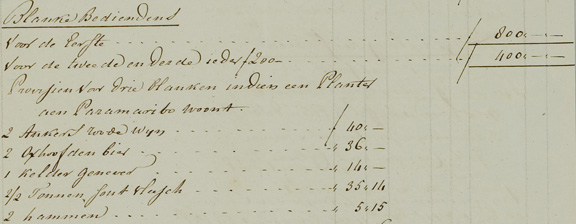 Blanke Bediendens
Voor de Eerste f 800 „ — „ —
Voor de tweede en derde ieder f 200 — f 400 „ — „ —
Provisien voor drie blanken indien een Planter
aen Paramaribo woont.
2 Ankers roode Wyn f 40 „ —
2 Oxhoofden bier „ 36 „ —
1 Kelder genever „ 14 „ —
2/2 Tonnen zout vleesch „ 35 „ 14
2 hammen „ 5 „ 15